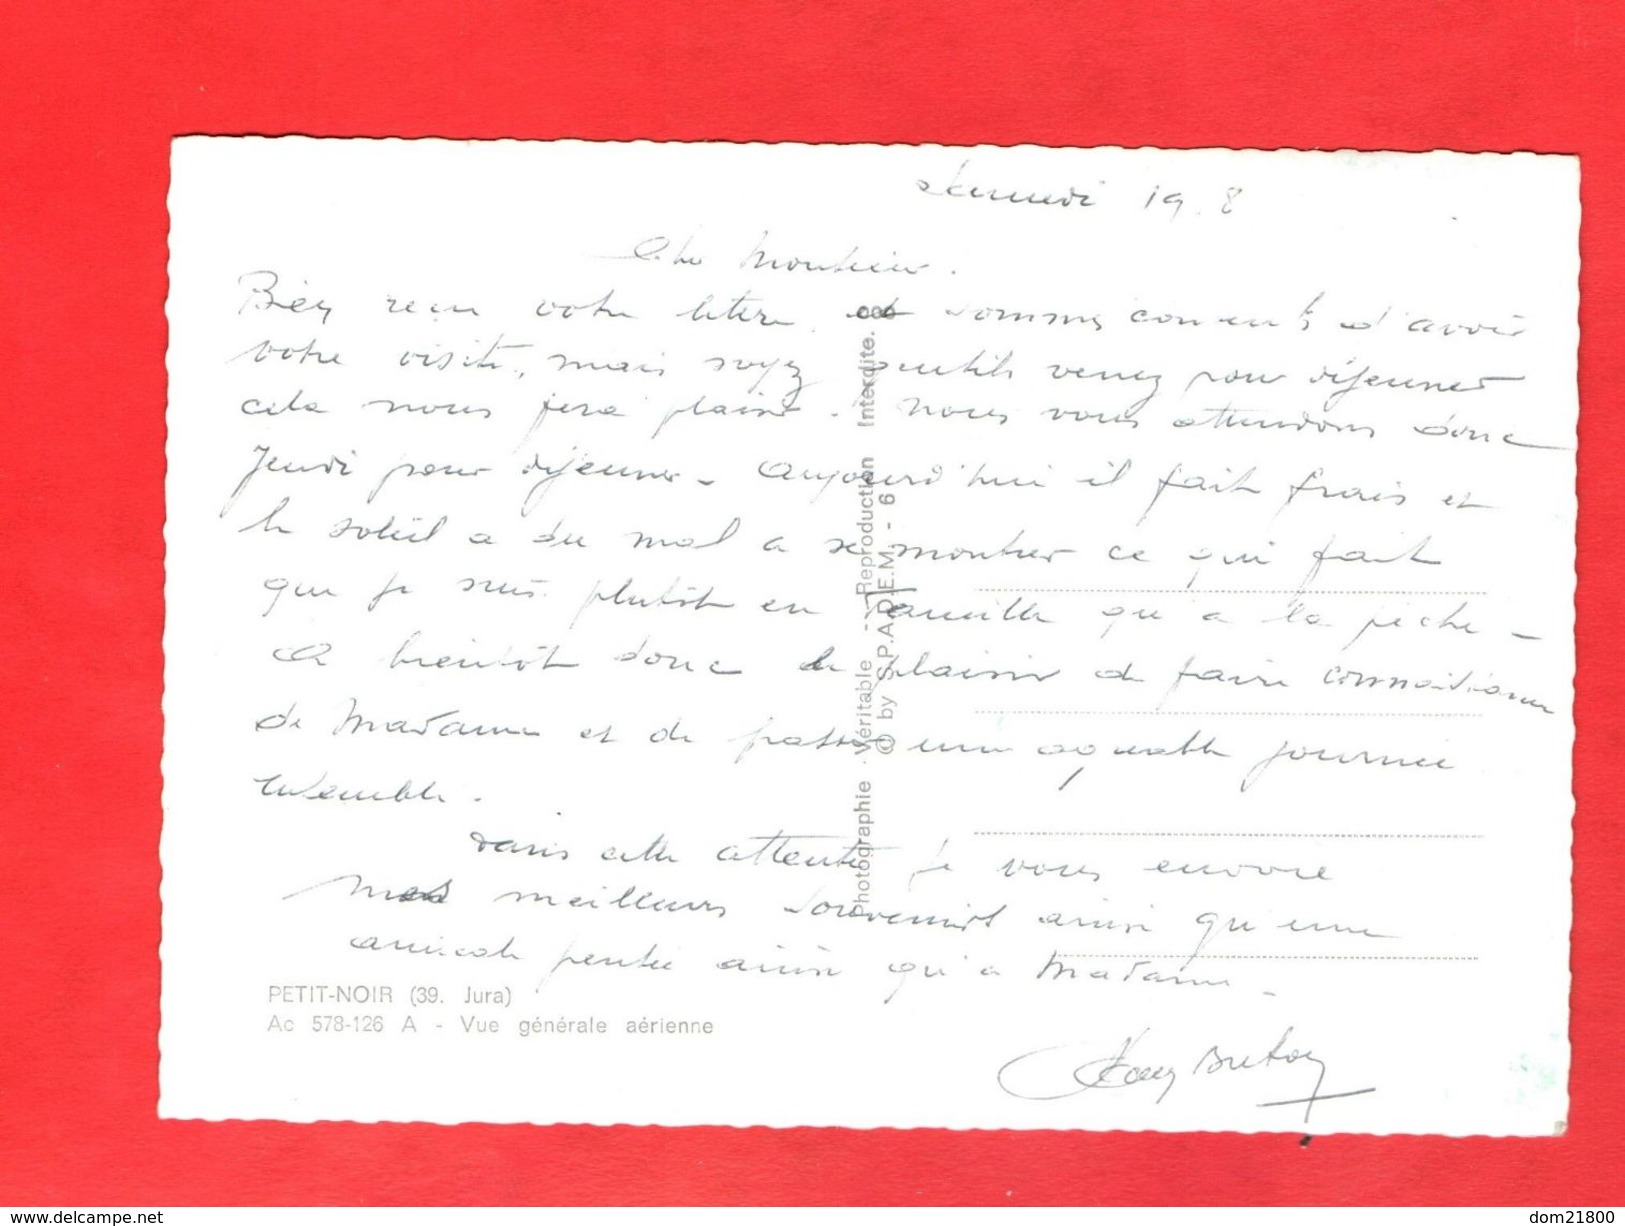 Samedi 19.8
Cher Monsieur.
Bien reçu votre lettre et sommes contents d'avoir
votre visite, mais soyez gentils venez pour déjeuner
cela nous fera plaisir. Nous vous attendons donc
Jeudi pour déjeuner - aujourd'hui il fait frais et
le soleil a du mal a se montrer ce qui fait
que je suis plutôt en famille qu'a la pêche -
A bientôt donc le plaisir de faire connaissance
de Madame et de passer une agréable journée
ensemble.
Dans cette attente je vous envoie
mes meilleurs souvenirs ainsi qu'une
amicale pensée ainsi qu'a Madame -
Breton
PETIT-NOIR (39. Jura)
Ac 578-126 A - Vue générale aérienne
Photographie Véritable - Reproduction Interdite.
© by S.P.A.D.E.M. - 6
delcampe.net
dom21800